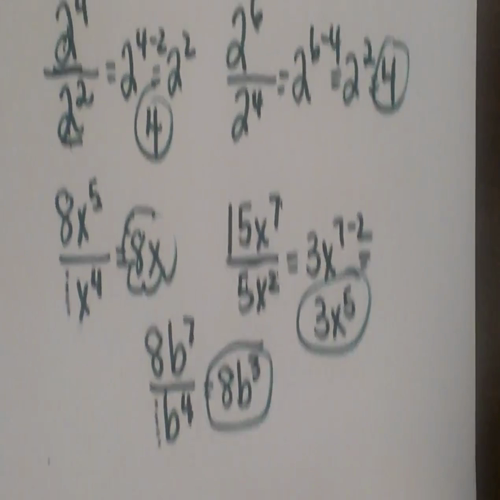 2⁴/2² = 2⁴⁻² = 2² 4
2⁶/2⁴ = 2⁶⁻⁴ = 2² 4
8x⁵/1x⁴ = 8x
15x⁷/5x² = 3x⁷⁻² = 3x⁵
8b⁷/1b⁴ 8b³